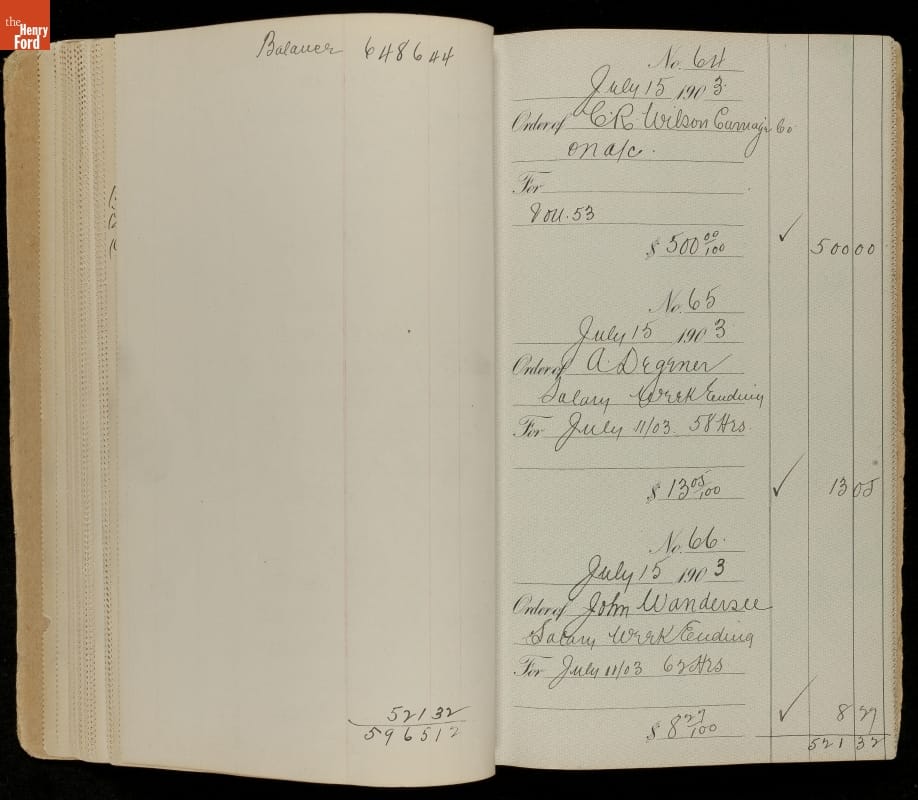 the
Henry
Ford
Balance 6486 44
521 32
5965 12
No. 64
July 15 1903
Order of C R Wilson Carriage Co
on a/c.
For
Vou. 53
$ 500 00/100
✓ 500 00
No. 65
July 15 1903
Order of A. Degener
Salary Week Ending
For July 11/03 58 Hrs
$ 13 05/100
✓ 13 05
No. 66
July 15 1903
Order of John Wandersee
Salary Week Ending
For July 11/03 62 Hrs
$ 8 27/100
✓ 8 27
521 32